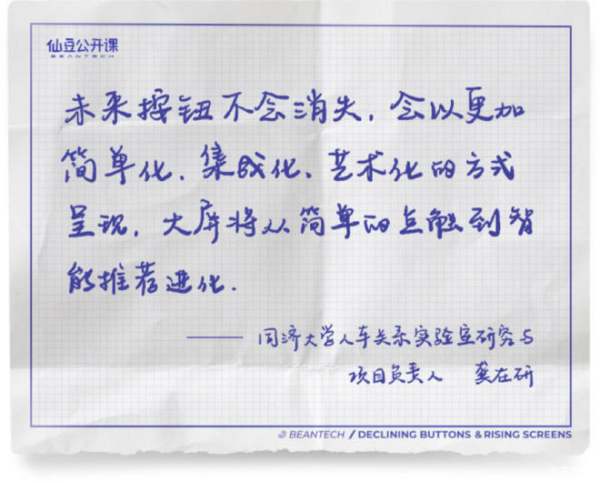 仙豆公开课
BEANTECH
未来按钮不会消失，会以更加
简单化、集成化、艺术化的方式
呈现，大屏将从简单的点触到智
能推荐进化.
—— 同济大学人车关系实验室研究与
项目负责人 龚在研
BEANTECH / DECLINING BUTTONS & RISING SCREENS